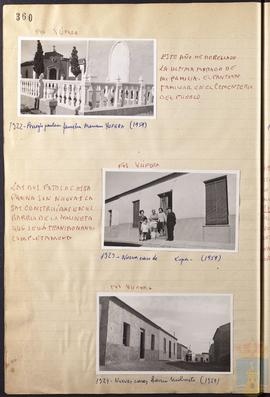 360
FOT YUFERA
ESTE AÑO HE ARREGLADO
LA ULTIMA MORADA DE
MI FAMILIA. EL PANTEON
FAMILIAR EN EL CEMENTERIO
DEL PUEBLO
1922- panteon familia YUFERA (1959)
FOT YUFERA
LAS DOS FOTOS DE ESTA
PAGINA SON NUEVAS CA
SAS CONSTRUIDAS EN EL
BARRIO DE LA
QUE SE VA TRANSFORMANDO
COMPLETAMENTE
1923- Nueva casa de (1959)
FOT YUFERA
1924- Nuevas casas Barrio (1959)